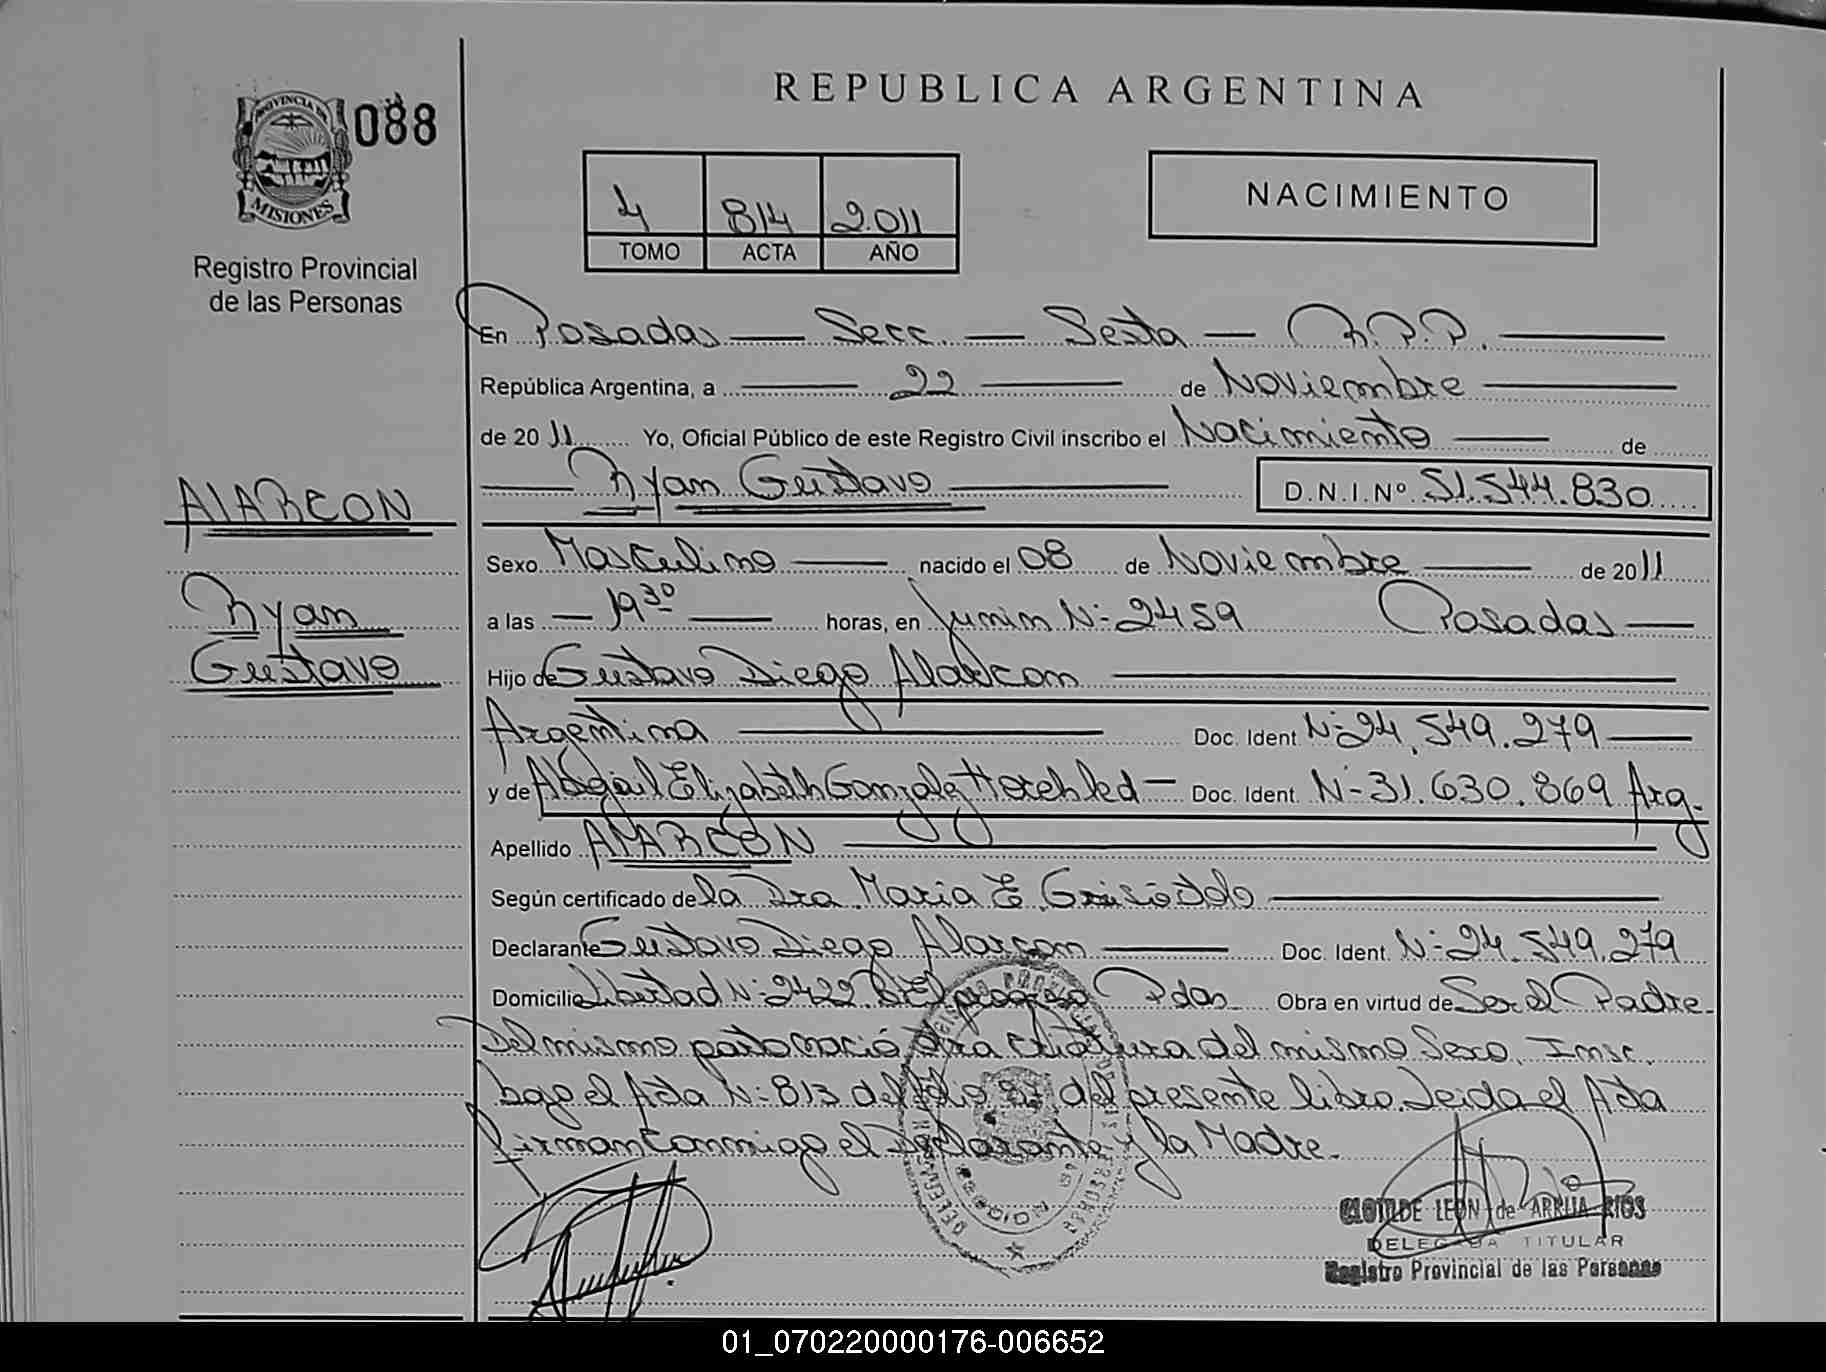 REPUBLICA ARGENTINA
PROVINCIA DE
MISIONES
088
Registro Provincial
de las Personas
4 814 2.011
TOMO ACTA AÑO
NACIMIENTO
En Posadas — Secc. — Sexta — R.P.P.
República Argentina, a 22 de Noviembre
de 2011 Yo, Oficial Público de este Registro Civil inscribo el Nacimiento de
Ryan Gustavo D.N.I.Nº 51.544.830
ALARCON
Ryan
Gustavo
Sexo Masculino nacido el 08 de Noviembre de 2011
a las — 19³⁰ — horas, en Junin N:2459 Posadas
Hijo de Gustavo Diego Alarcon
Argentina Doc. Ident. N:24.549.279
y de Abgail Elizabeth Gonzalez Doc. Ident. N-31.630.869 Arg.
Apellido ALARCON
Según certificado de la Dra. Maria E.
Declarante Gustavo Diego Alarcon Doc. Ident. N:24.549.279
Domicilio Libertad N:2422 Bº El Pdas Obra en virtud de Ser el Padre
Del mismo parto nació otra criatura del mismo Sexo. Insc.
bajo el Acta N:813 del folio 87 del presente libro. Leida el Acta
Firman Conmigo el Declarante y la Madre.
CLOTILDE LEON de ARRUA RIOS
DELEGADA TITULAR
Registro Provincial de las Personas
01_070220000176-006652